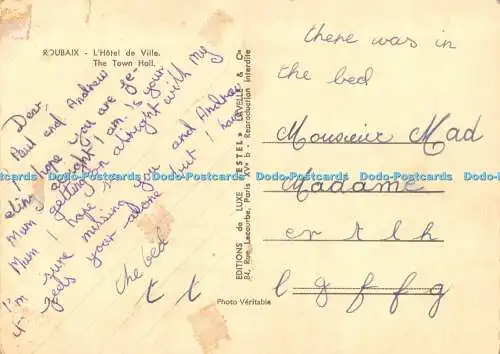 ROUBAIX - L'Hôtel de Ville.
The Town Hall.
Dear,
Paul and Andrew
I hope you are fe-
eling alright I am. is your
Mum getting on alright with my
Mum I hope so.
I'm sure missing you and Andrew
but I hate
feels your alone
the bed
t t
Photo Véritable
EDITIONS de LUXE « ESTEL » LAVELLE & Cie
84, Rue Lecourbe, Paris XVe - Reproduction interdite
there was in
the bed
Monsieur Mad
Madame
e r t l h
l g f f g
Dodo-Postcards Dodo-Postcards Dodo-Postcards Dodo-Postcards